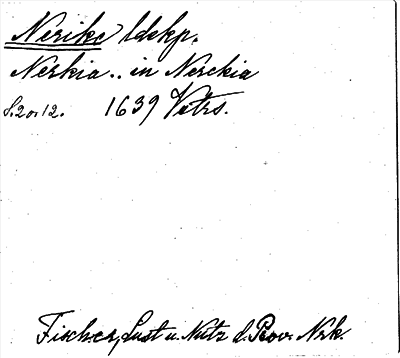 Nerike ldskp.
Nerkia .. in Nerckia
S. 2 o. 12. 1639 Vetrs.
Fischer, Lust u. Nutz d. Prov. Nrk.